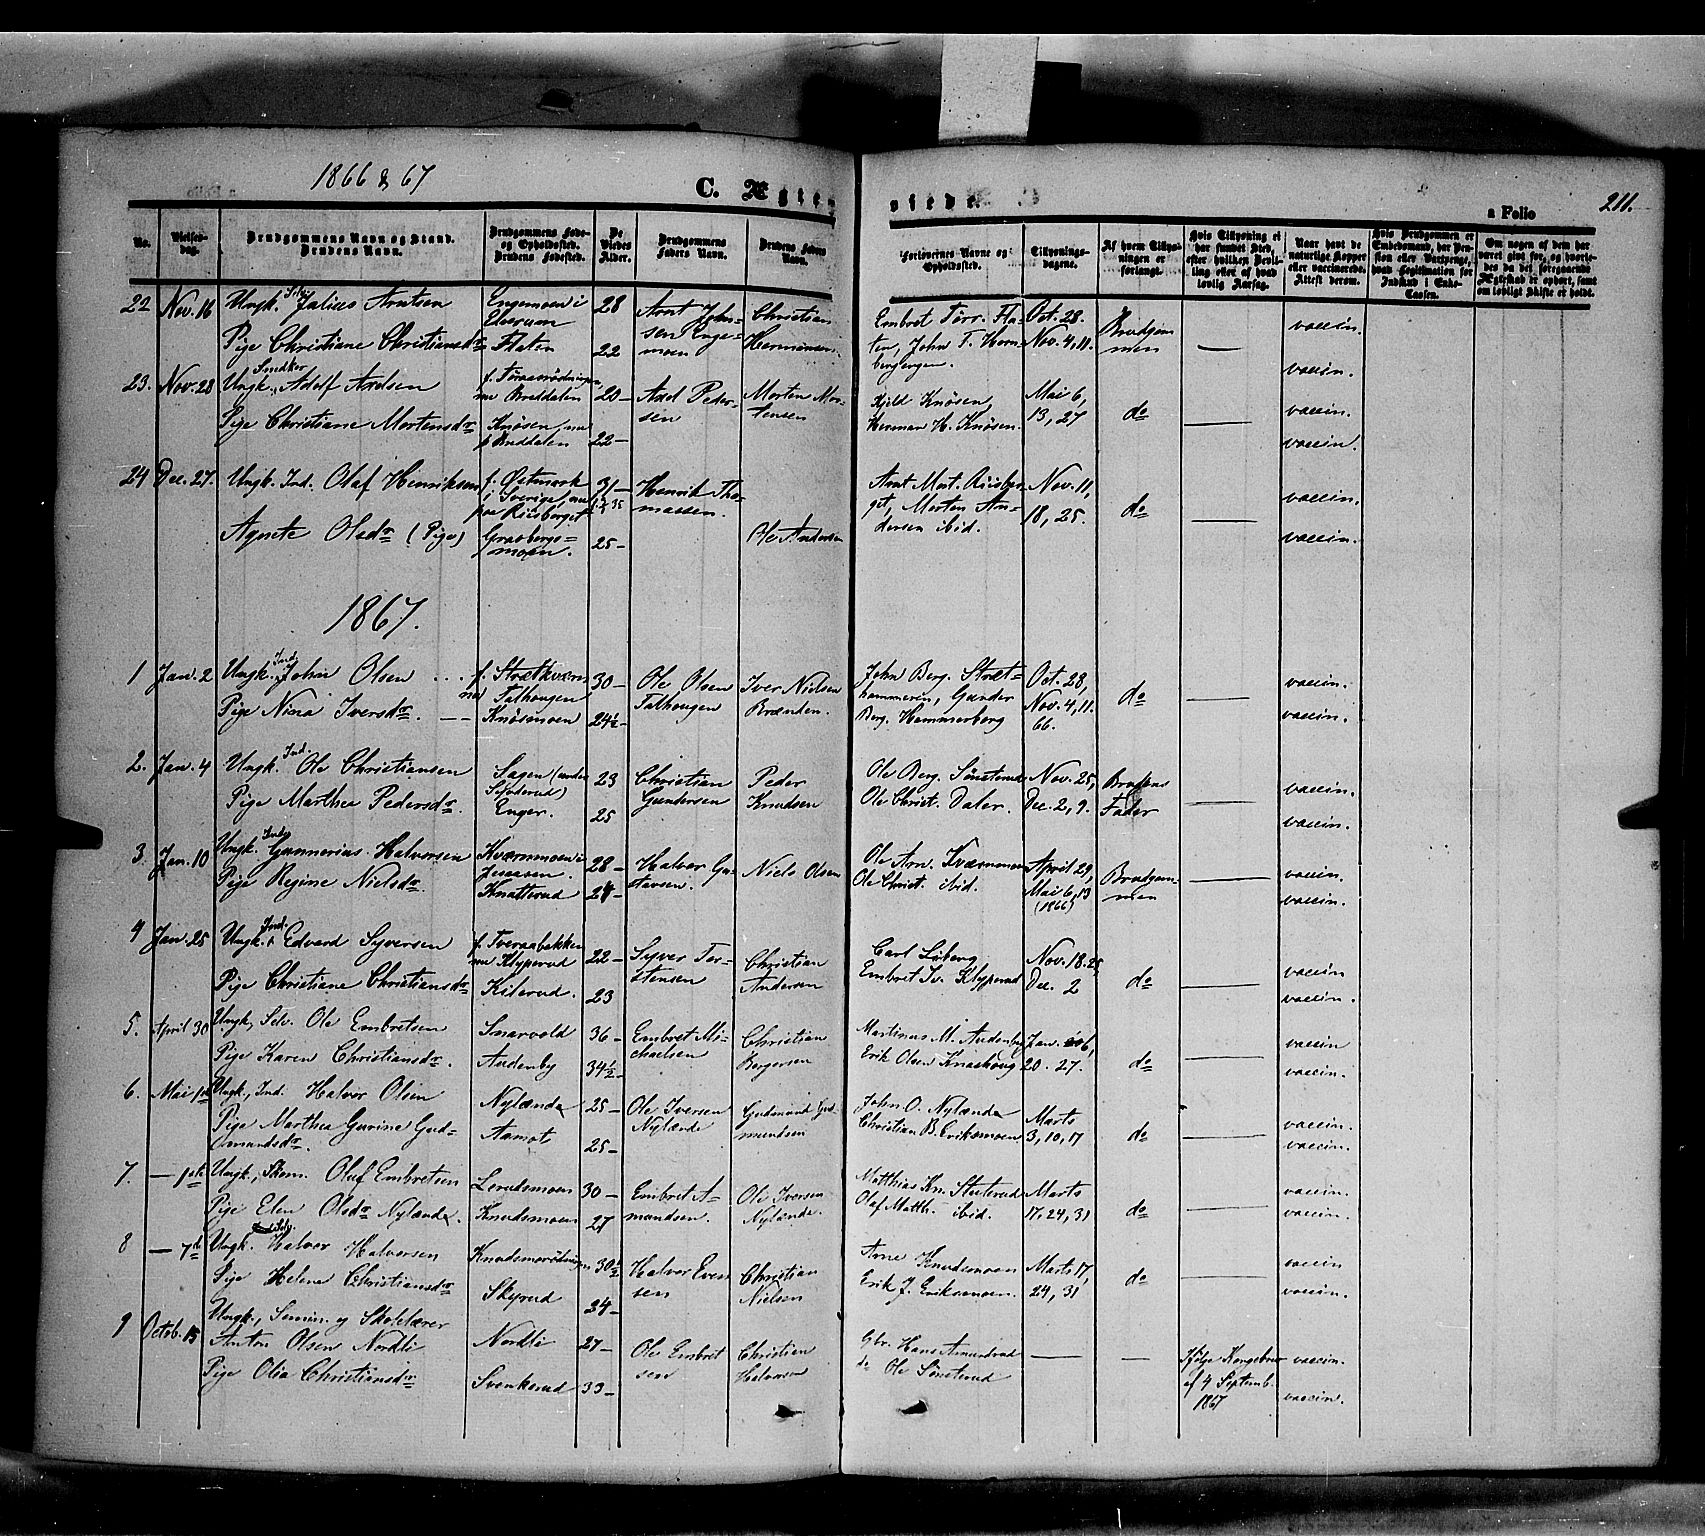 1866 & 67
C. Ægte-
viede.
a Folio
211.
No.
Vielses-dag.
Brudgommens Navn og Stand.
Brudens Navn.
Brudgommens Føde-
og Opholdssted.
Brudens Fødested.
De
Viedes
Alder.
Brudgommens
Faders Navn.
Brudens Faders
Navn.
Forlovernes Navne og
Opholdssted.
Tillysnings-
dagene.
Af hvem Tillys-
ningen er
forlangt.
Hvis Tillysning ei
har fundet Sted,
efter hvilken Bevil-
ling eller af hvad
lovlig Aarsag.
Naar havt de
naturlige Kopper
eller vaccinerede.
Attest derom.
Hvis Brudgommen er
Embedsmand, har Pen-
sion eller Vartpenge,
hvad Legitimation for
Indskud i Enke-
Cassen.
Om nogen af dem har
været gift før, og hvorle-
des da det foregaaende
Ægteskab er ophørt, samt
om lovligt Skifte er holdt.
22 Nov. 16 Ungk. Selv. Julius Arntsen Engemoen i Elverum 28 Arnt Johnsen Engemoen Christian Hermansen
Pige Christiane Christiansdr Flaten 22
Embret Torr. Flaten, John T. Hornbergengen. Oct. 28. Nov. 4, 11. Brudgommen — vaccin.
vaccin.
23. Nov. 28 Ungk. Snedker Adolf Axelsen nu Breddalen 20 – Axel Pedersen Morten Mortensen
Pige Christiane Mortensdr Knøsen, nu Breddalen 22 –
Kjeld Knøsen, Herman H. Knøsen. Mai 6, 13, 27 do — vaccin.
vaccin.
24 Dec. 27. Ungk. Ind. Olaf Henriksen f. Østmark i Sverige, nu paa Riisberget 31 – Henrik Thomassen.
Agnete Olsdr (Pige) Grasbergsmoen. 25 – Ole Andersen
Arnt Mort. Riisberget, Morten Andersen ibid. Nov. 11, 18, 25. do — vaccin.
vaccin.
1867.
1 Jan. 2 Ungk. Ind. John Olsen f. Strætkværn nu Talhaugen 30 – Ole Olsen Talhougen Iver Nielsen Brænden.
Pige Nina Iversdr. Knøsmoen 24½ –
John Berg. Stræthammeren, Gunder Berg. Hammerberg Oct. 28, Nov. 4, 11. 66. do — vaccin.
vaccin.
2. Jan. 4 Ungk. Ind. Ole Christiansen Sagen (under Synderud) 23 Christian Gundersen Peder Knudsen
Pige Marthea Pedersdr. Enger. 25
Ole Berg. Sønsterud Ole Christ. Daler. Nov. 25, Dec. 2, 9. Brudens Fader — vaccin.
vaccin.
3. Jan. 10 Ungk. Ind. Gunnerius Halvorsen Kværnmoen i 28 – Halvor Gustavsen. Niels Olsen
Pige Regine Nielsdr. Knatterud 24 –
Ole Arn. Kværnmoen Ole Christ. ibid. April 29, Mai 6, 13 (1866) Brudgommen — vaccin.
vaccin.
4 Jan. 25 Ungk. Ind. Edvard Syversen f. Tveraabakken nu Klyperud 22 – Syver Torstensen Christian Andersen
Pige Christiane Christiansdr. Kilerud. 23
Carl Liberg Embret Iv. Klyperud Nov. 18. 25, Dec. 2 do — vaccin
vaccin.
5. April 30 Ungk., Selv. Ole Embretsen Snarvold 36 – Embret Michaelsen Christian Bergersen
Pige Karen Christiansdr. Audenby 34½ –
Martinus M. Audenby Erik Olsen Knashoug Jan. 6, 20. 27. do — vaccin
vaccin.
6. Mai 1ste Ungk., Ind. Halvor Olsen Nylænda 25 – Ole Iversen Nylænde Gudmund Gudmundsen
Pige Marthea Gurine Gudmundsdr. Aamot 25 –
John O. Nylænda Christian B. Eriksmoen Marts 3, 10, 17 do — vaccin.
vaccin.
7. — 1ste Ungk., Skom. Oluf Embretsen Lerudsmoen 30 – Embret Amundsen. Ole Iversen Nylænde.
Pige Elen Olsdr Nylænda. Knudsmoen 27
Matthias Kn. Stuterud Olaf Matth. ibid. Marts 17, 24, 31 do — vaccin.
vaccin.
8 — 7de Ungk. Selv. Halvor Halvorsen Knudsmorødningen 30½ Halvor Evensen Christian Nielsen
Pige Helene Christiansdr Skyrud 24 –
Arne Knudsmoen Erik J. Eriksmoen. Marts 17, 24, 31 do — vaccin
vaccin.
9 Octob. 15 Ungk., Semin. og Skolelærer Anton Olsen Nordli Nordli 27 – Ole Embretsen Christian Halvorsen
Pige Olia Christiansdr Svenkerud 33 –
Gbr. Hans Amundrud do Ole Sønsterud — — Ifølge Kongebrev af 4 Septemb. 1867 vaccin.
vaccin.